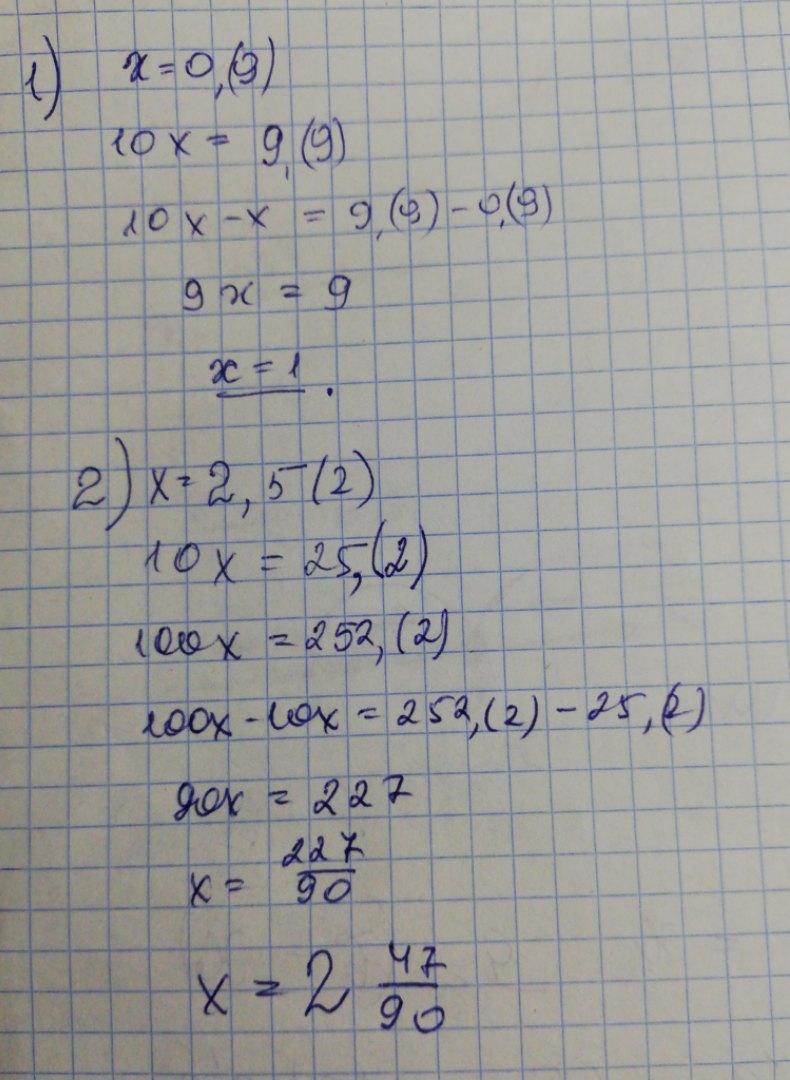 1) x = 0,(9)
10x = 9,(9)
10x - x = 9,(9) - 0,(9)
9x = 9
x = 1.
2) x = 2,5(2)
10x = 25,(2)
100x = 252,(2)
100x - 10x = 252,(2) - 25,(2)
90x = 227
x = 227/90
x = 2 47/90